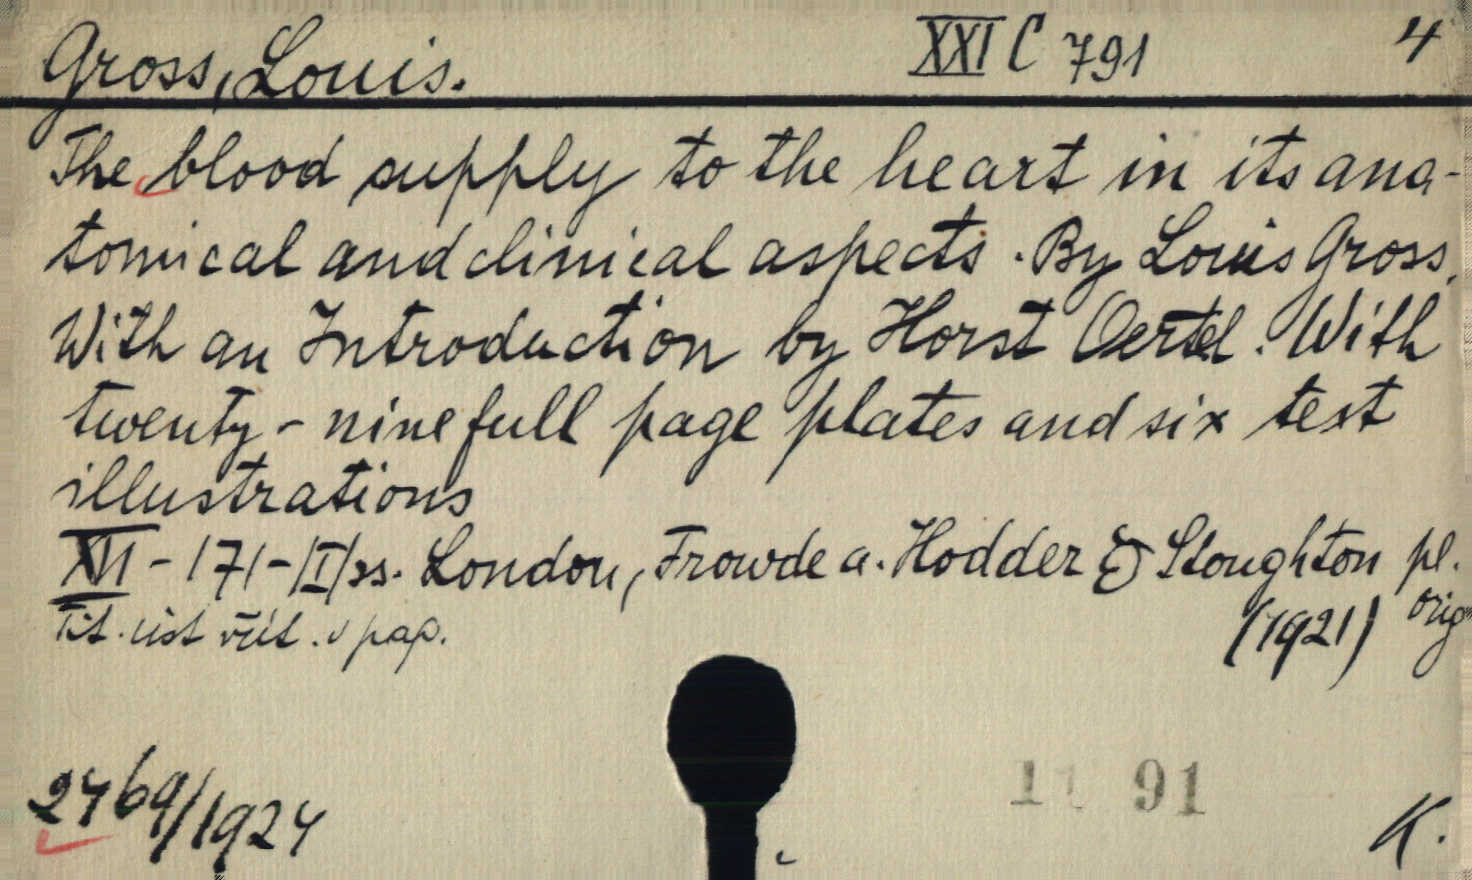 Gross, Louis. XXI C 791 4
The blood supply to the heart in its ana-
tomical and clinical aspects. By Louis Gross.
With an Introduction by Horst Oertel. With
twenty-nine full page plates and six text
illustrations
XVI-171-|I| ss. London, Frowde a. Hodder & Stoughton pl.
(1921) orig
Tit. üst
pap.
91
2769/1924
K.